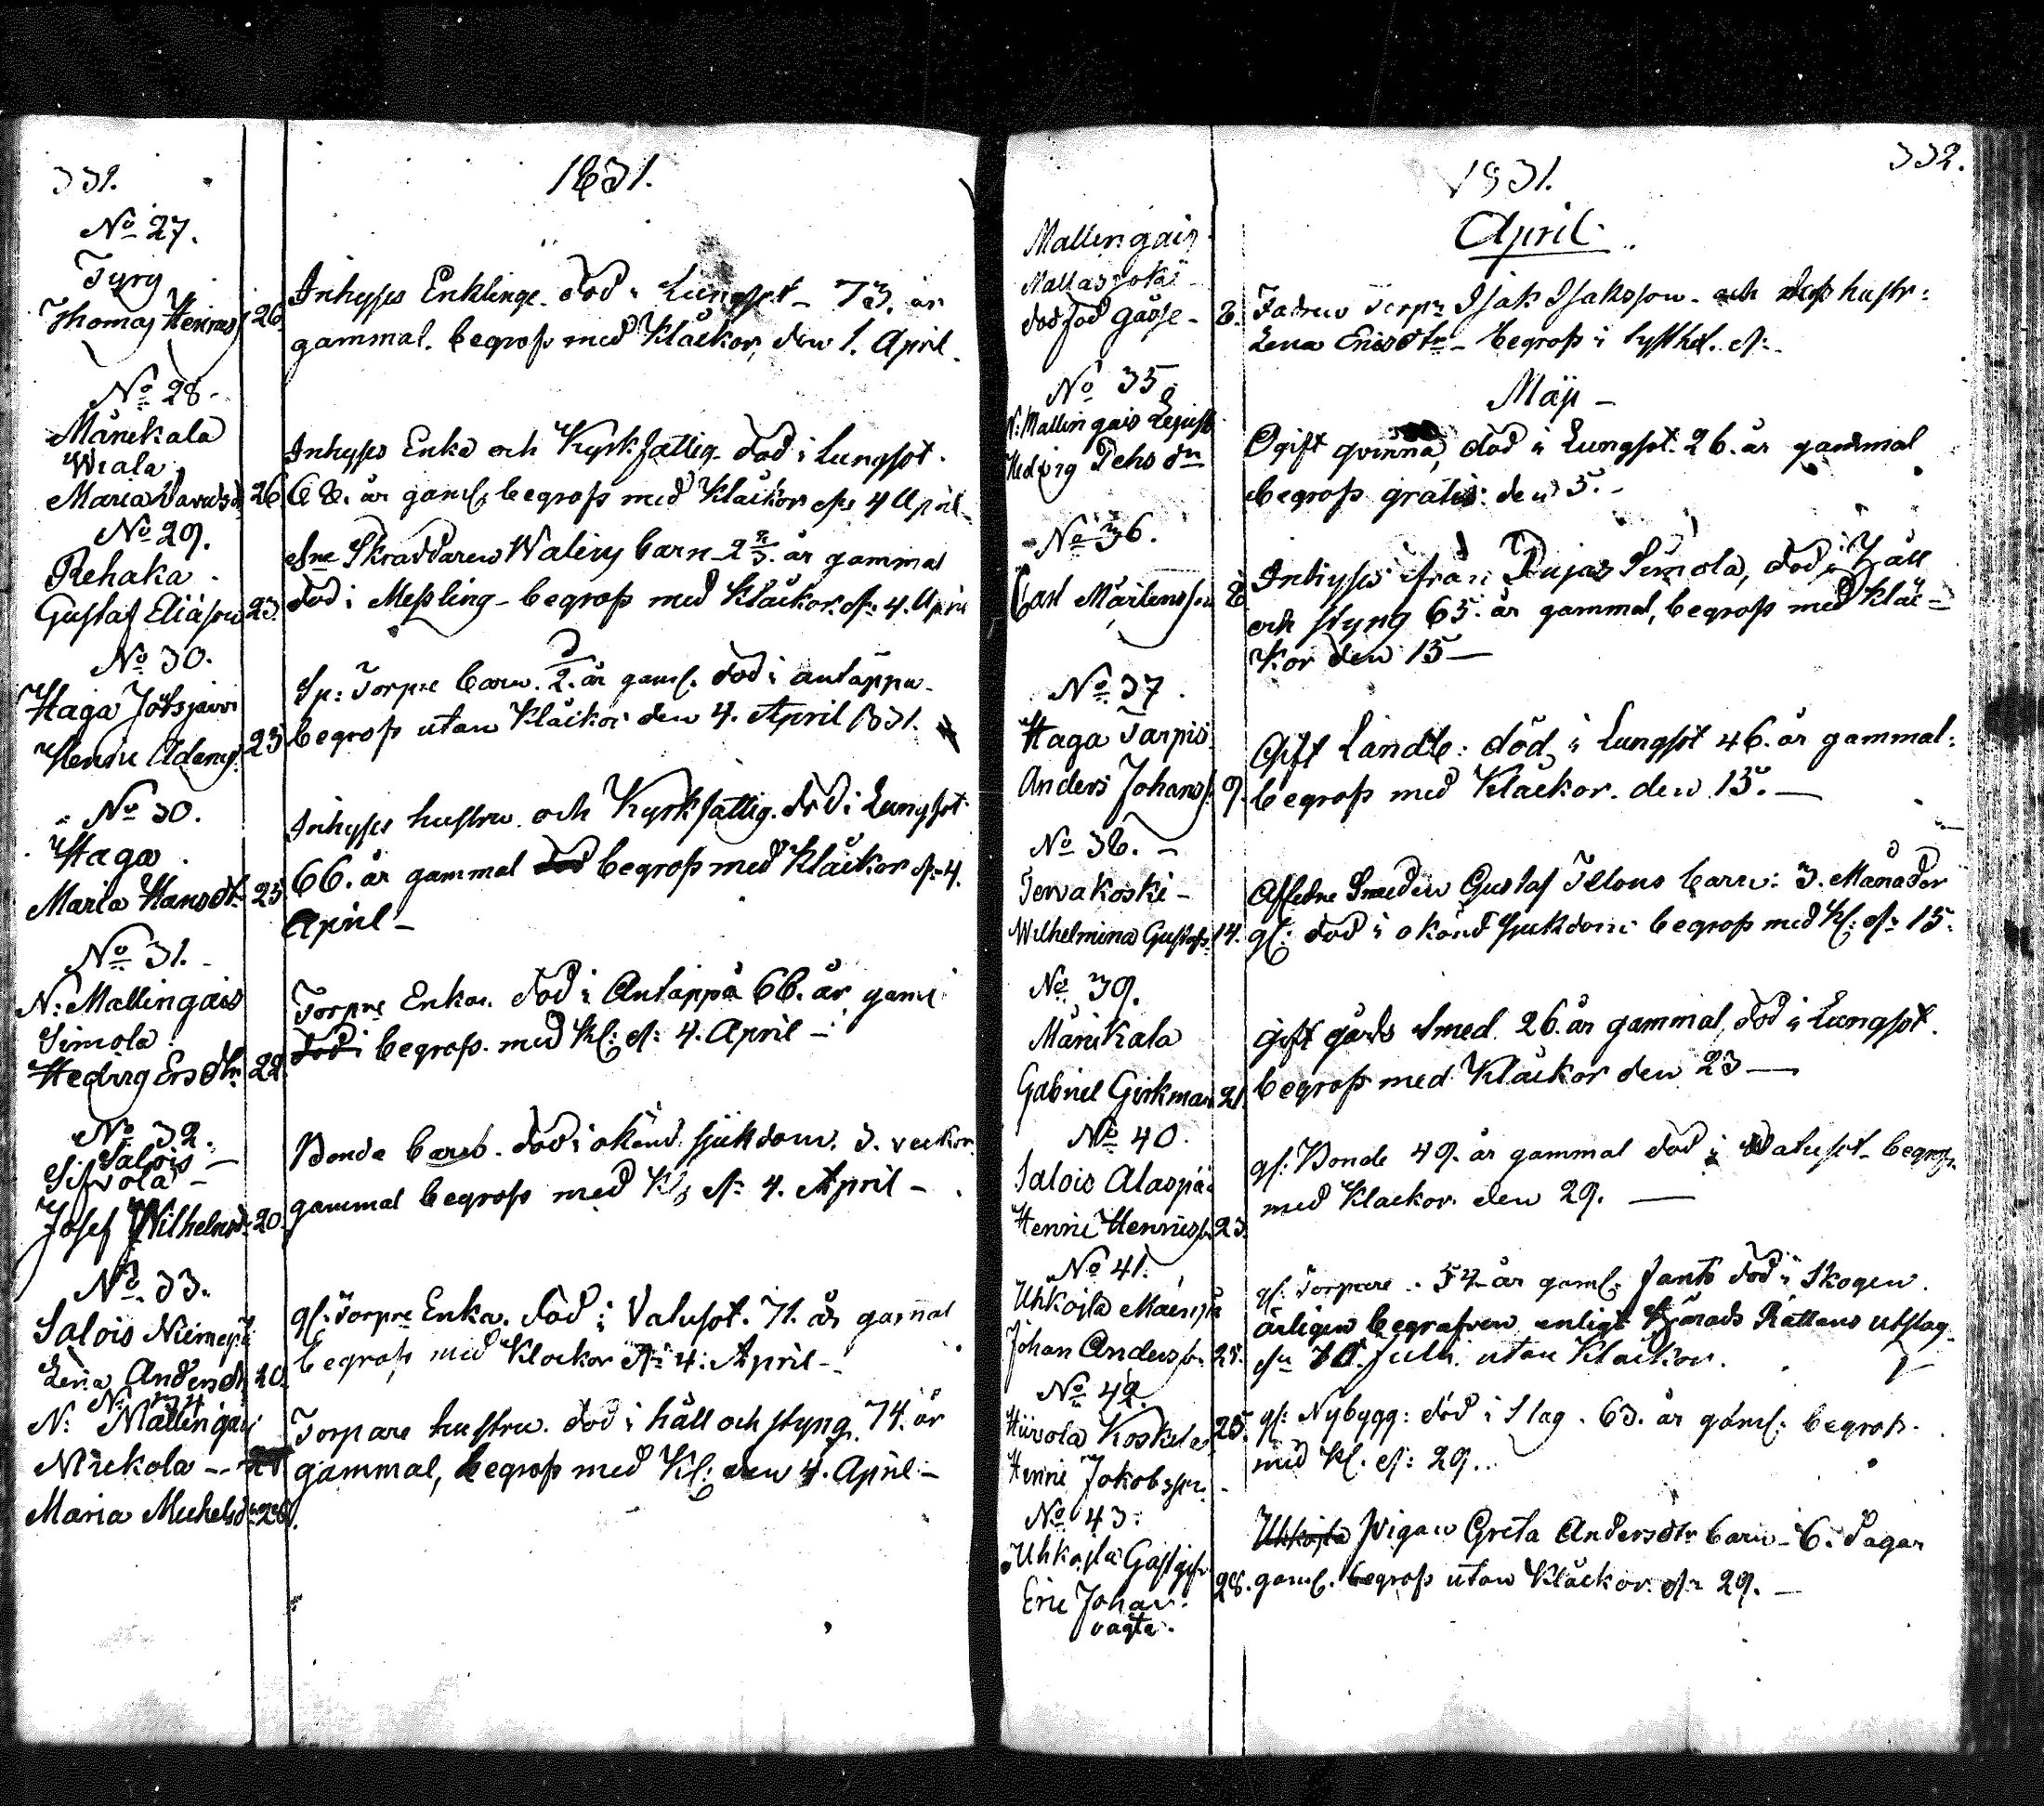 331.
1831.
No 27.
Tyry
Thomas Henrs 26.
Inhyses Enklinge. död i Lungsot - 73. år
gammal. begrofs med Klåckor, den 1. April.
No 28.
Månikala
Wiala
Maria Davidsd 26
Inhyses Enka och Kyrkfattig. död i Lungsot.
68. år gaml. begrofs med Klåckor dn 4 April
No 29.
Rehaka
Gustaf Eliasson 23.
Skraddaren Walins barn - 2 år gammal
död i Messling - begrofs med Klåckor. dn: 4. April
No 30.
Haga Jötsjärvi
Henric Adams. 23
Sp: Torpre barn. 2. år gaml. död i antäppa
begrofs utan Klåckor den 4. April 1831.
No 30.
Haga
Maria Hansdtr 25
Inhyses hustru och Kyrkfattig. död i Lungsot
66. år gammal död begrofs med Klåckor dn 4.
April -
No 31.
N: Mallingais
Simola
Hedvig Ersdtr 22.
Torpre Enka. död i Antäppa 66. år gaml
död i begrofs. med Kl: dn: 4. April -
No 32.
Salois -
Sifvola -
Josef Wilhelmsd. 20.
Bonde barn. död i okänd sjukdom. 3. veckor
gammal begrofs med Kl. dn 4. April -
No 33.
Salois Niemespä
Lena Andersdt 20.
gl: Torpre Enka. död i Valusot. 71. år gammal
begrofs med Klockor dn 4. April -
No 34
N: Mallingais
Nickola -
Maria Michelsd 28.
Torpare hustru. död i håll och styng. 74. år
gammal, begrofs med Kl: den 4. April -
332.
1831.
April
Mallingais
Mallasjoki
död föd gåsse - 8.
Fadren Torpr Isak Isaksson - och dess hustr:
Lena Ericsdtr - begrofs i
Maji -
No 35
N: Mallingais
Hedvig dtr
Ogift qvinna, död i Lungsot. 26. år gammal
begrofs gratis: den 3. -
No 36.
Carl Mårtensson 8
Inhyses från Pujas Simola, död i håll
och styng 65. år gammal, begrofs med Klåc-
kor den 15 -
No 37.
Haga Tarpis
Anders Johans. 9.
Gift Landb: död i Lungsot 46. år gammal:
begrofs med Klåckor. den 15. -
No 38. -
Tervakoski -
Wilhelmina Gustafs 14.
Smeden Gustaf barn: 3. Månader
gl: död i okänd sjukdom begrofs med Kl: dn: 15.
No 39.
Månikala
Gabriel Girkman 21.
gift gårds Smed. 26. år gammal, död i Lungsot.
begrofs med Klåckor den 23 -
No 40.
Salois Alaspää
Henric Henricss. 23.
gl: Bonde 49. år gammal död i Watusot - begrofs
med Klockor. den 29. -
No 41.
Uhkoila
Johan Anderss. 25.
gl: Torpare. 54 år gaml. fants död i Skogen.
ärligen begrafven enligt Härads Rättens utslag.
dn 10. Julii. utan Klåckor.
No 42.
Hirvola Koskela 25.
Henric Jakobsson.
gl: Nybygg: död i Slag. 63. år gaml: begrofs.
med Kl. dn: 29..
No 43.
Uhkoila Gästgifv
Eric Johan 28.
Uhkoila Pigan Greta Andersdtr barn - 6. dagar
gaml. begrofs utan Klåckor dn 29. -